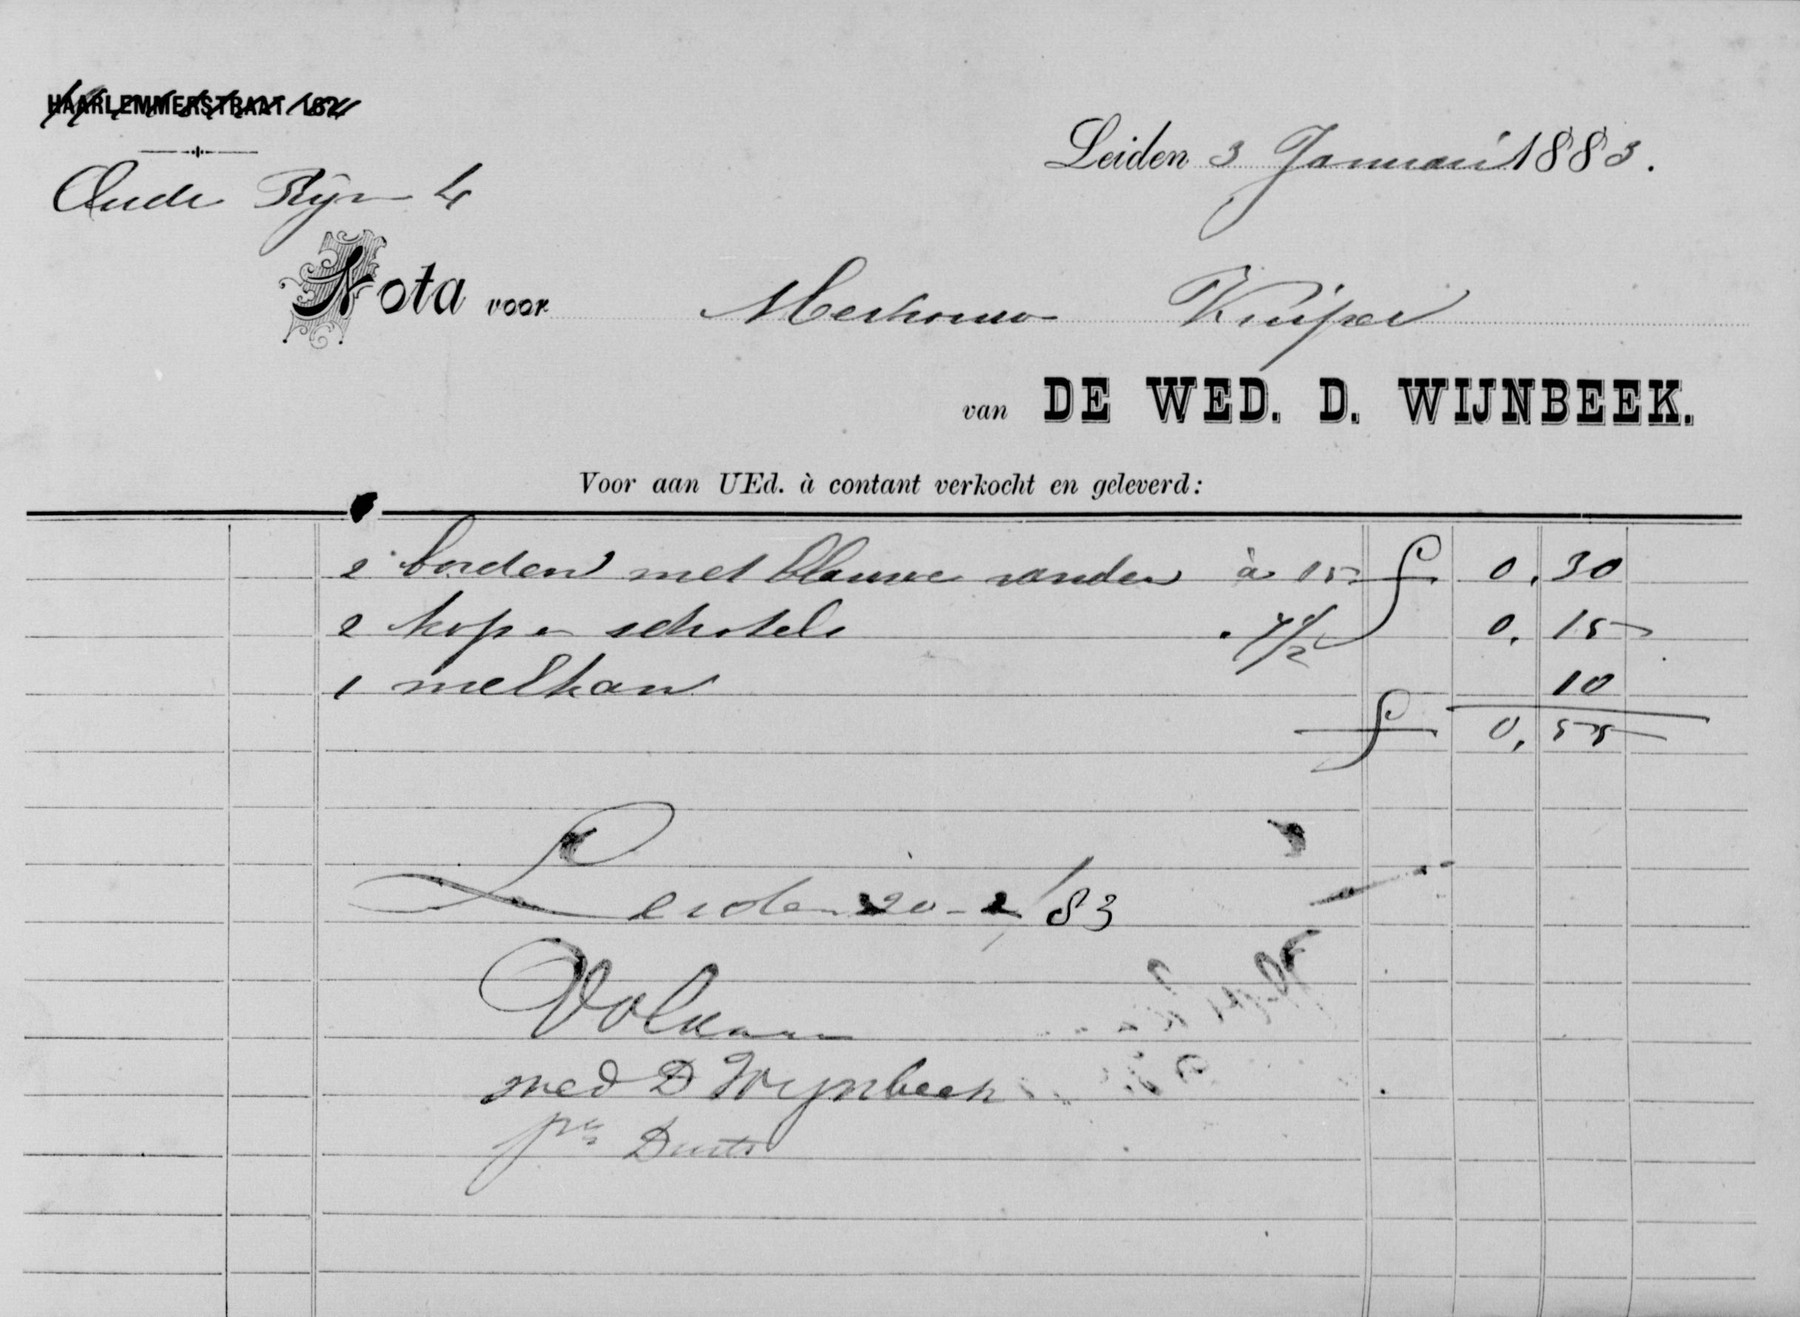 HAARLEMMERSTRAAT 162
Oude Rijn 4
Leiden 3 Januari 1883.
Nota voor Mevrouw Kuiper
van DE WED. D. WIJNBEEK.
Voor aan UEd. à contant verkocht en geleverd:
2 borden met blauwe randen à 15 f 0.30
2 kop en schotels . 7 1/2 0.15
1 melkan 10
f 0,55
Leiden 20-2/83
Voldaan
wed D Wijnbeek